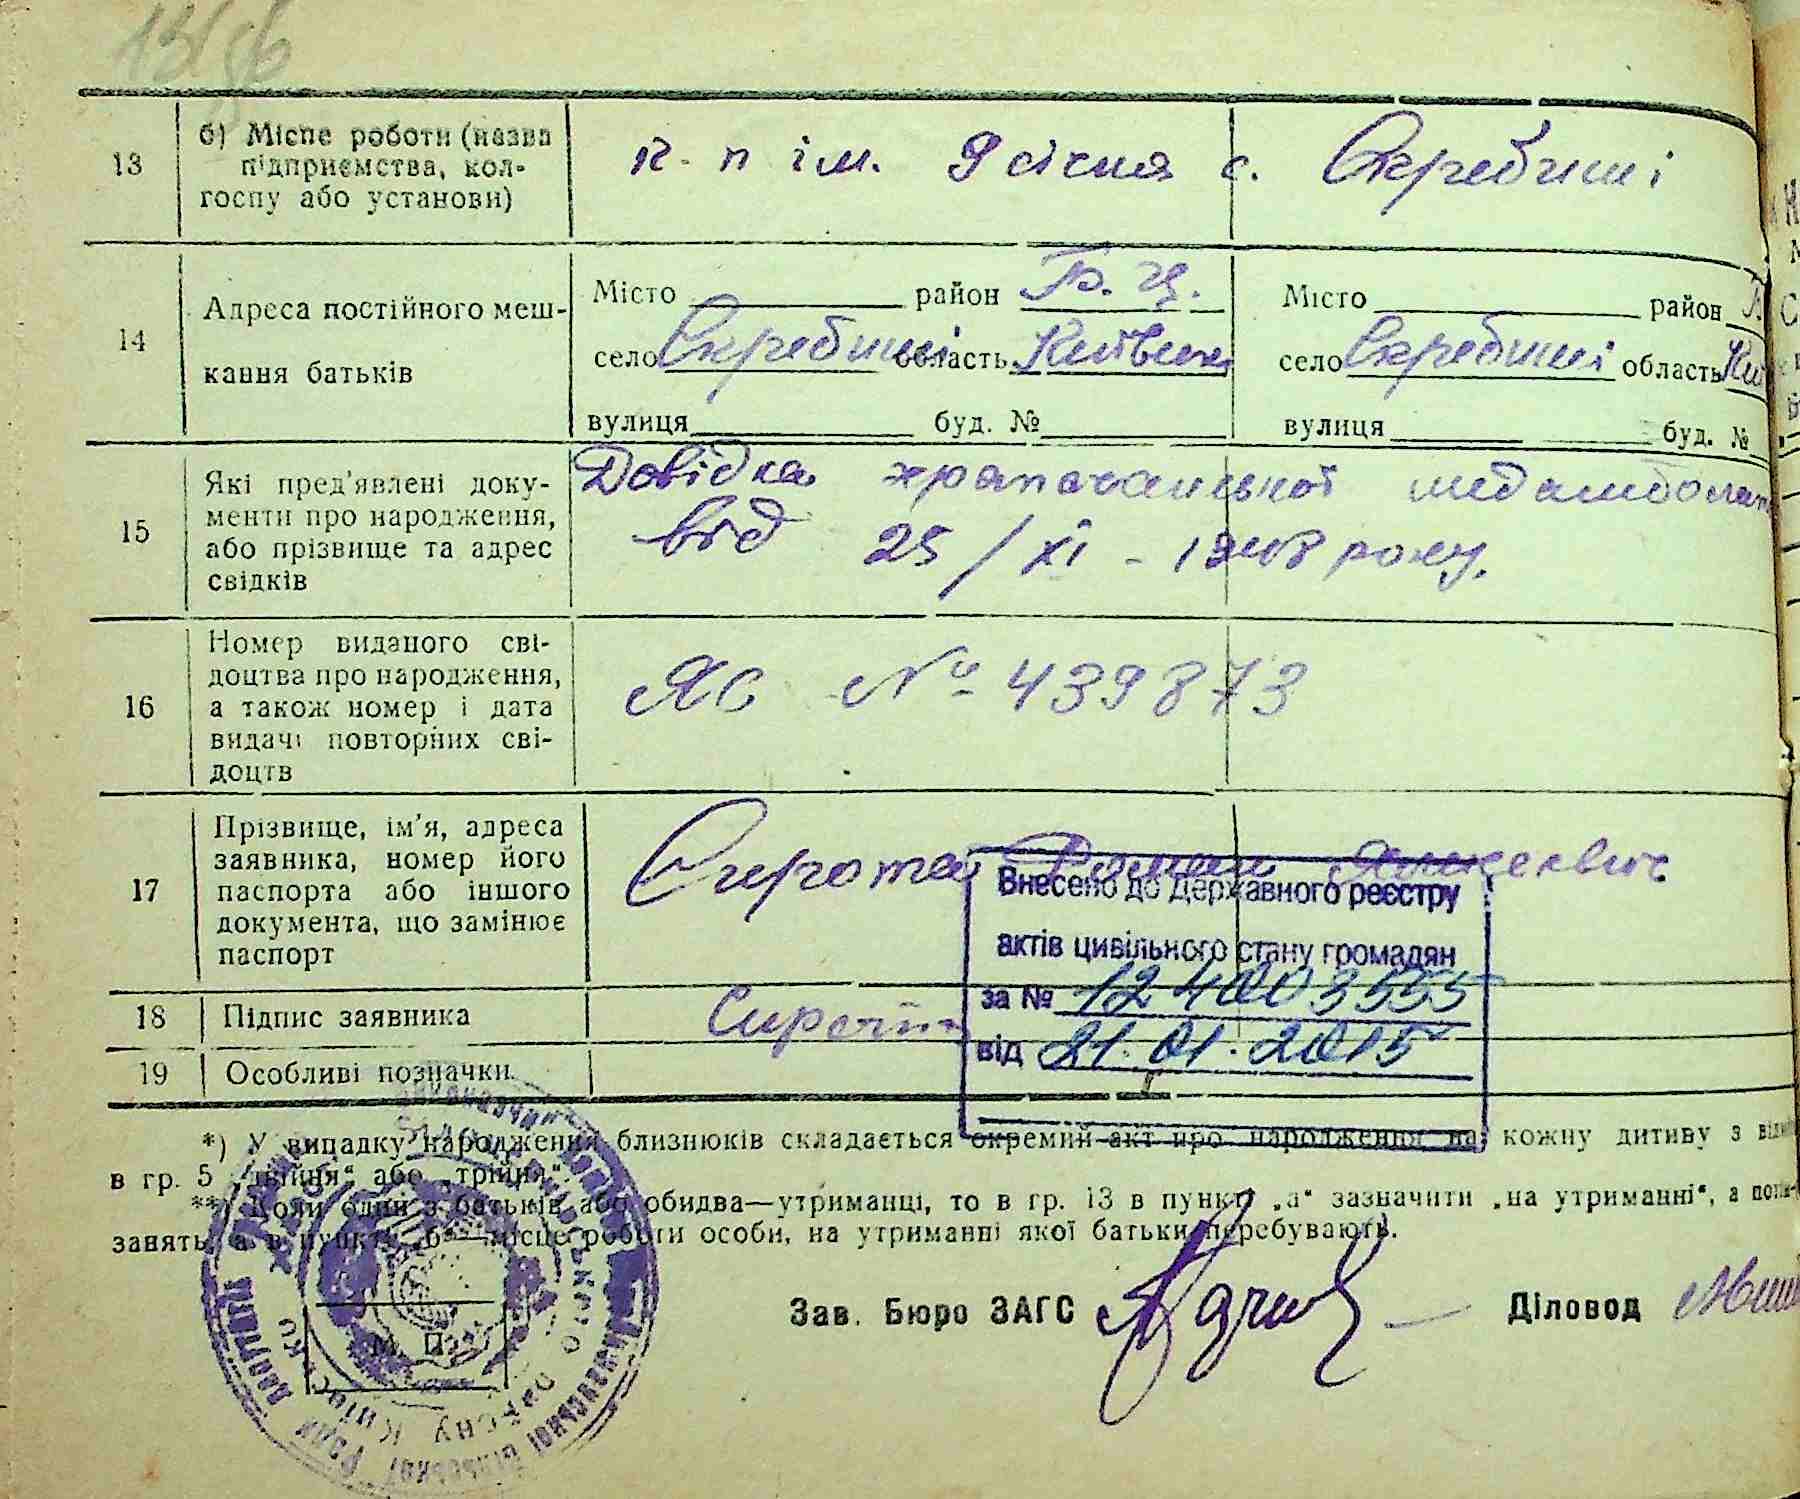 13
б) Місце роботи (назва підприємства, колгоспу або установи)
к-п ім. 9 січня с. Скребиші
14
Адреса постійного мешкання батьків
Місто район Б. Ц.
село Скребиші область Київськ
вулиця буд. №
Місто район
село Скребиші область Ки
вулиця буд. №
15
Які пред'явлені доку-
менти про народження,
або прізвище та адрес
свідків
Довідка храпачанської медамболат
від 25/XI - 1948 року.
16
Номер виданого сві-
доцтва про народження,
а також номер і дата
видачі повторних сві-
доцтв
ЯС № 439873
17
Прізвище, ім'я, адреса
заявника, номер його
паспорта або іншого
документа, що замінює
паспорт
Сирота Роман
Внесено до Державного реєстру
актів цивільного стану громадян
за № 124003555
від 21.01.2015
18
Підпис заявника
19
Особливі позначки
*) У випадку народження близнюків складається окремий акт про народження на кожну дитину з
в гр. 5 „двійня“ або „трійня“.
**) Коли один з батьків або обидва—утриманці, то в гр. 13 в пункті „а“ зазначити „на утриманні“, а
занять, а в пункті „б“—місце роботи особи, на утриманні якої батьки перебувають.
Зав. Бюро ЗАГС
Діловод
М. П.